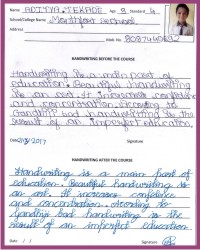 Name ADITYA TEKADE Age 9 Standard 4
School/College Name Montfort School
Address
Mob. No. 8087440632
HANDWRITING BEFORE THE COURSE
Handwriting is a main part of
education. Beautiful handwriting
is an art. It increases confidence
and concentration. According to
Gandhiji bad handwriting is the
result of an imperfect education.
HANDWRITING AFTER THE COURSE
Handwriting is a main part of
education. Beautiful handwriting is
an art. It increases confidence
and concentration. According to
Gandhiji bad handwriting is the
result of an imperfect education.
Date / /
Signature